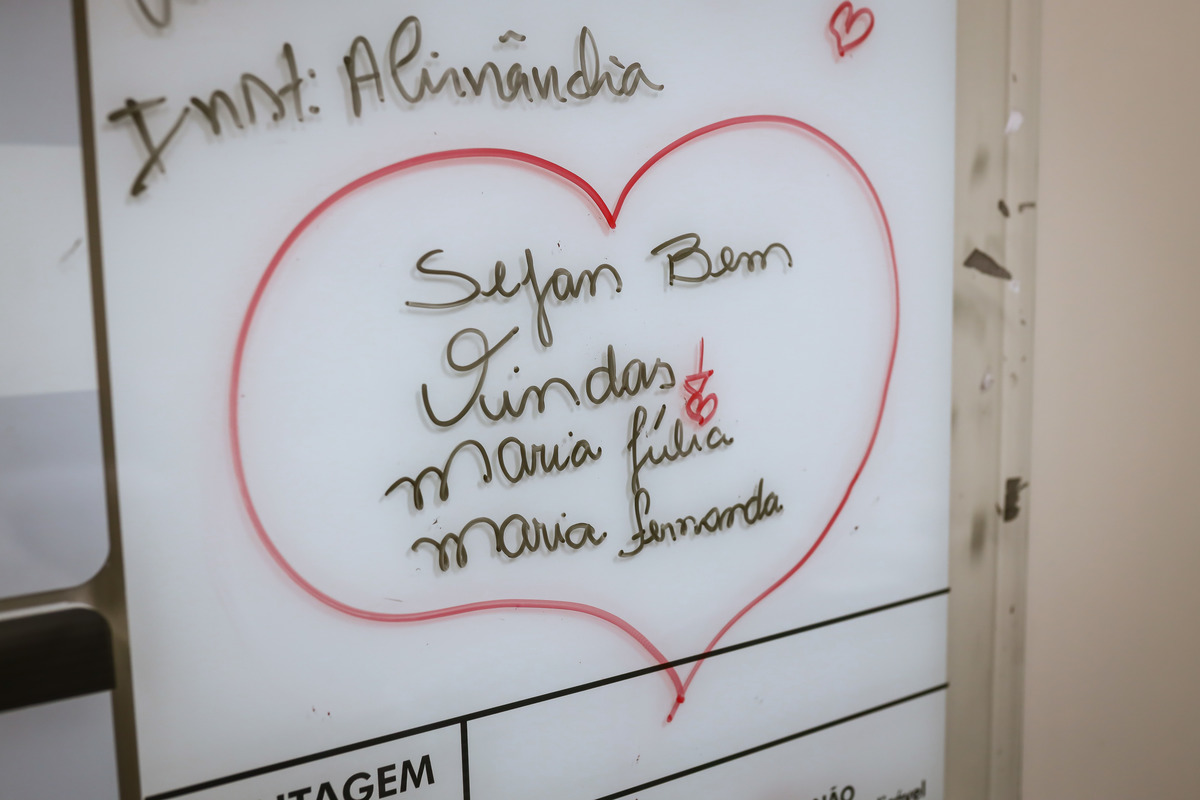 Inst: Alinândia
Sejan Bem
Vindas
Maria Júlia
Maria Fernanda
NTAGEM
NÃO